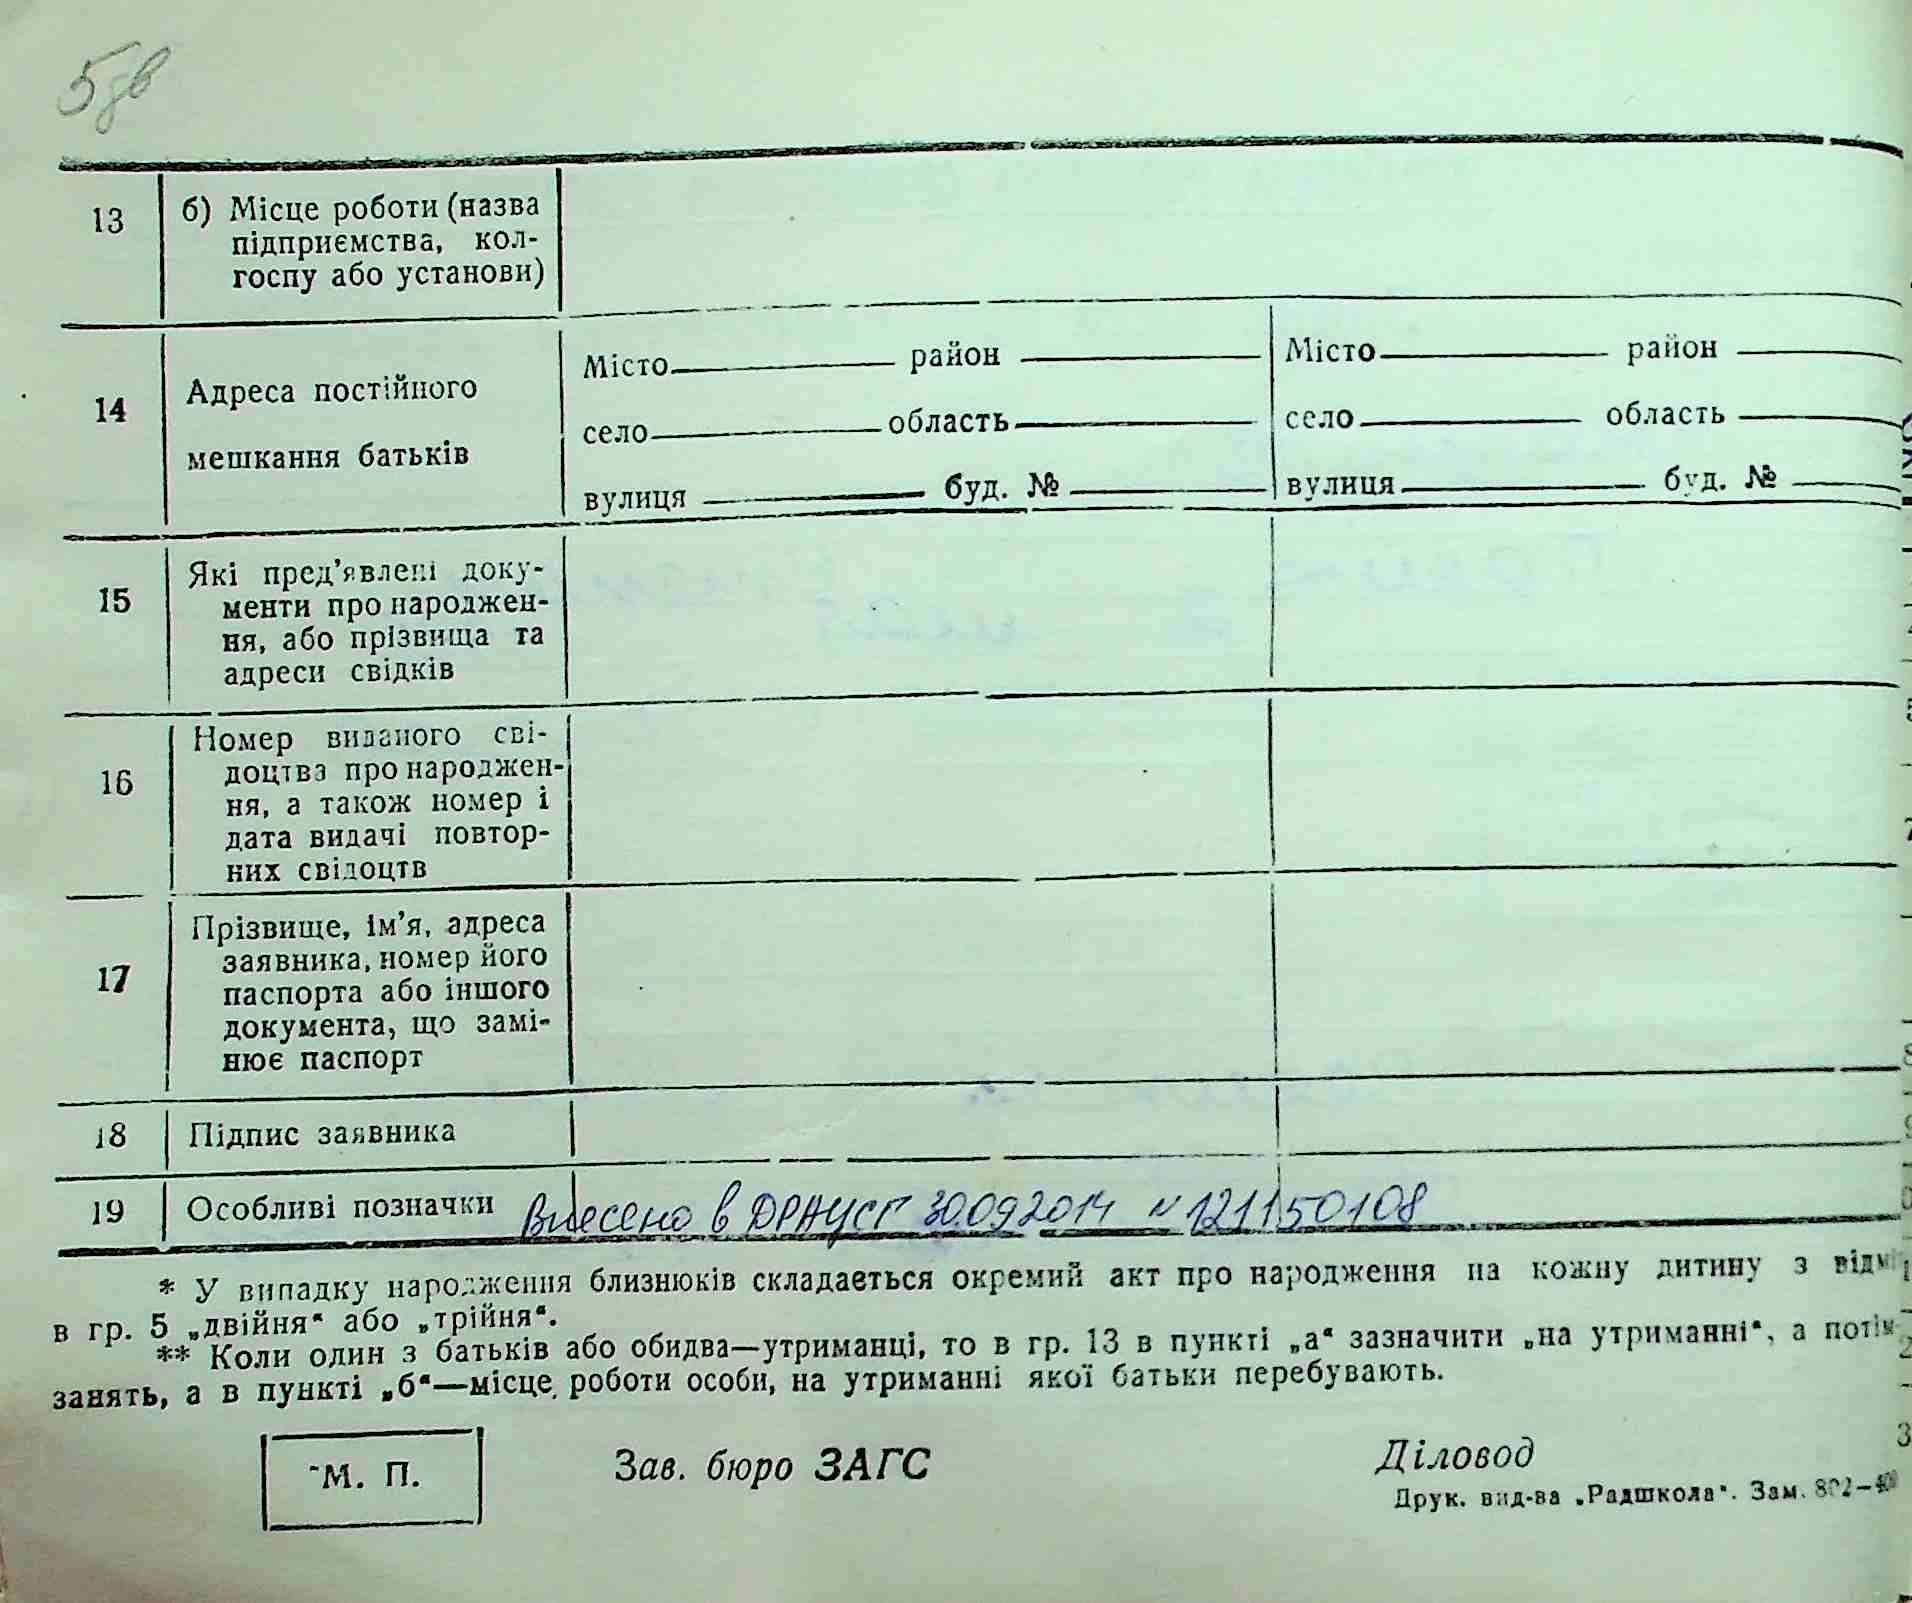 5зв
13 б) Місце роботи (назва
підприємства, кол-
госпу або установи)
14 Адреса постійного
мешкання батьків
Місто район Місто район
село область село область
вулиця буд. № вулиця буд. №
15 Які пред’явлені доку-
менти про народжен-
ня, або прізвища та
адреси свідків
16 Номер виданого сві-
доцтва про народжен-
ня, а також номер і
дата видачі повтор-
них свідоцтв
17 Прізвище, ім’я, адреса
заявника, номер його
паспорта або іншого
документа, що замі-
нює паспорт
18 Підпис заявника
19 Особливі позначки Внесено в ДРАЦСГ 30.09.2014 № 121150108
* У випадку народження близнюків складається окремий акт про народження на кожну дитину з
в гр. 5 „двійня“ або „трійня“.
** Коли один з батьків або обидва—утриманці, то в гр. 13 в пункті „а“ зазначити „на утриманні“, а потім
занять, а в пункті „б“—місце роботи особи, на утриманні якої батьки перебувають.
М. П. Зав. бюро ЗАГС Діловод
Друк. вид-ва „Радшкола“. Зам. 802—